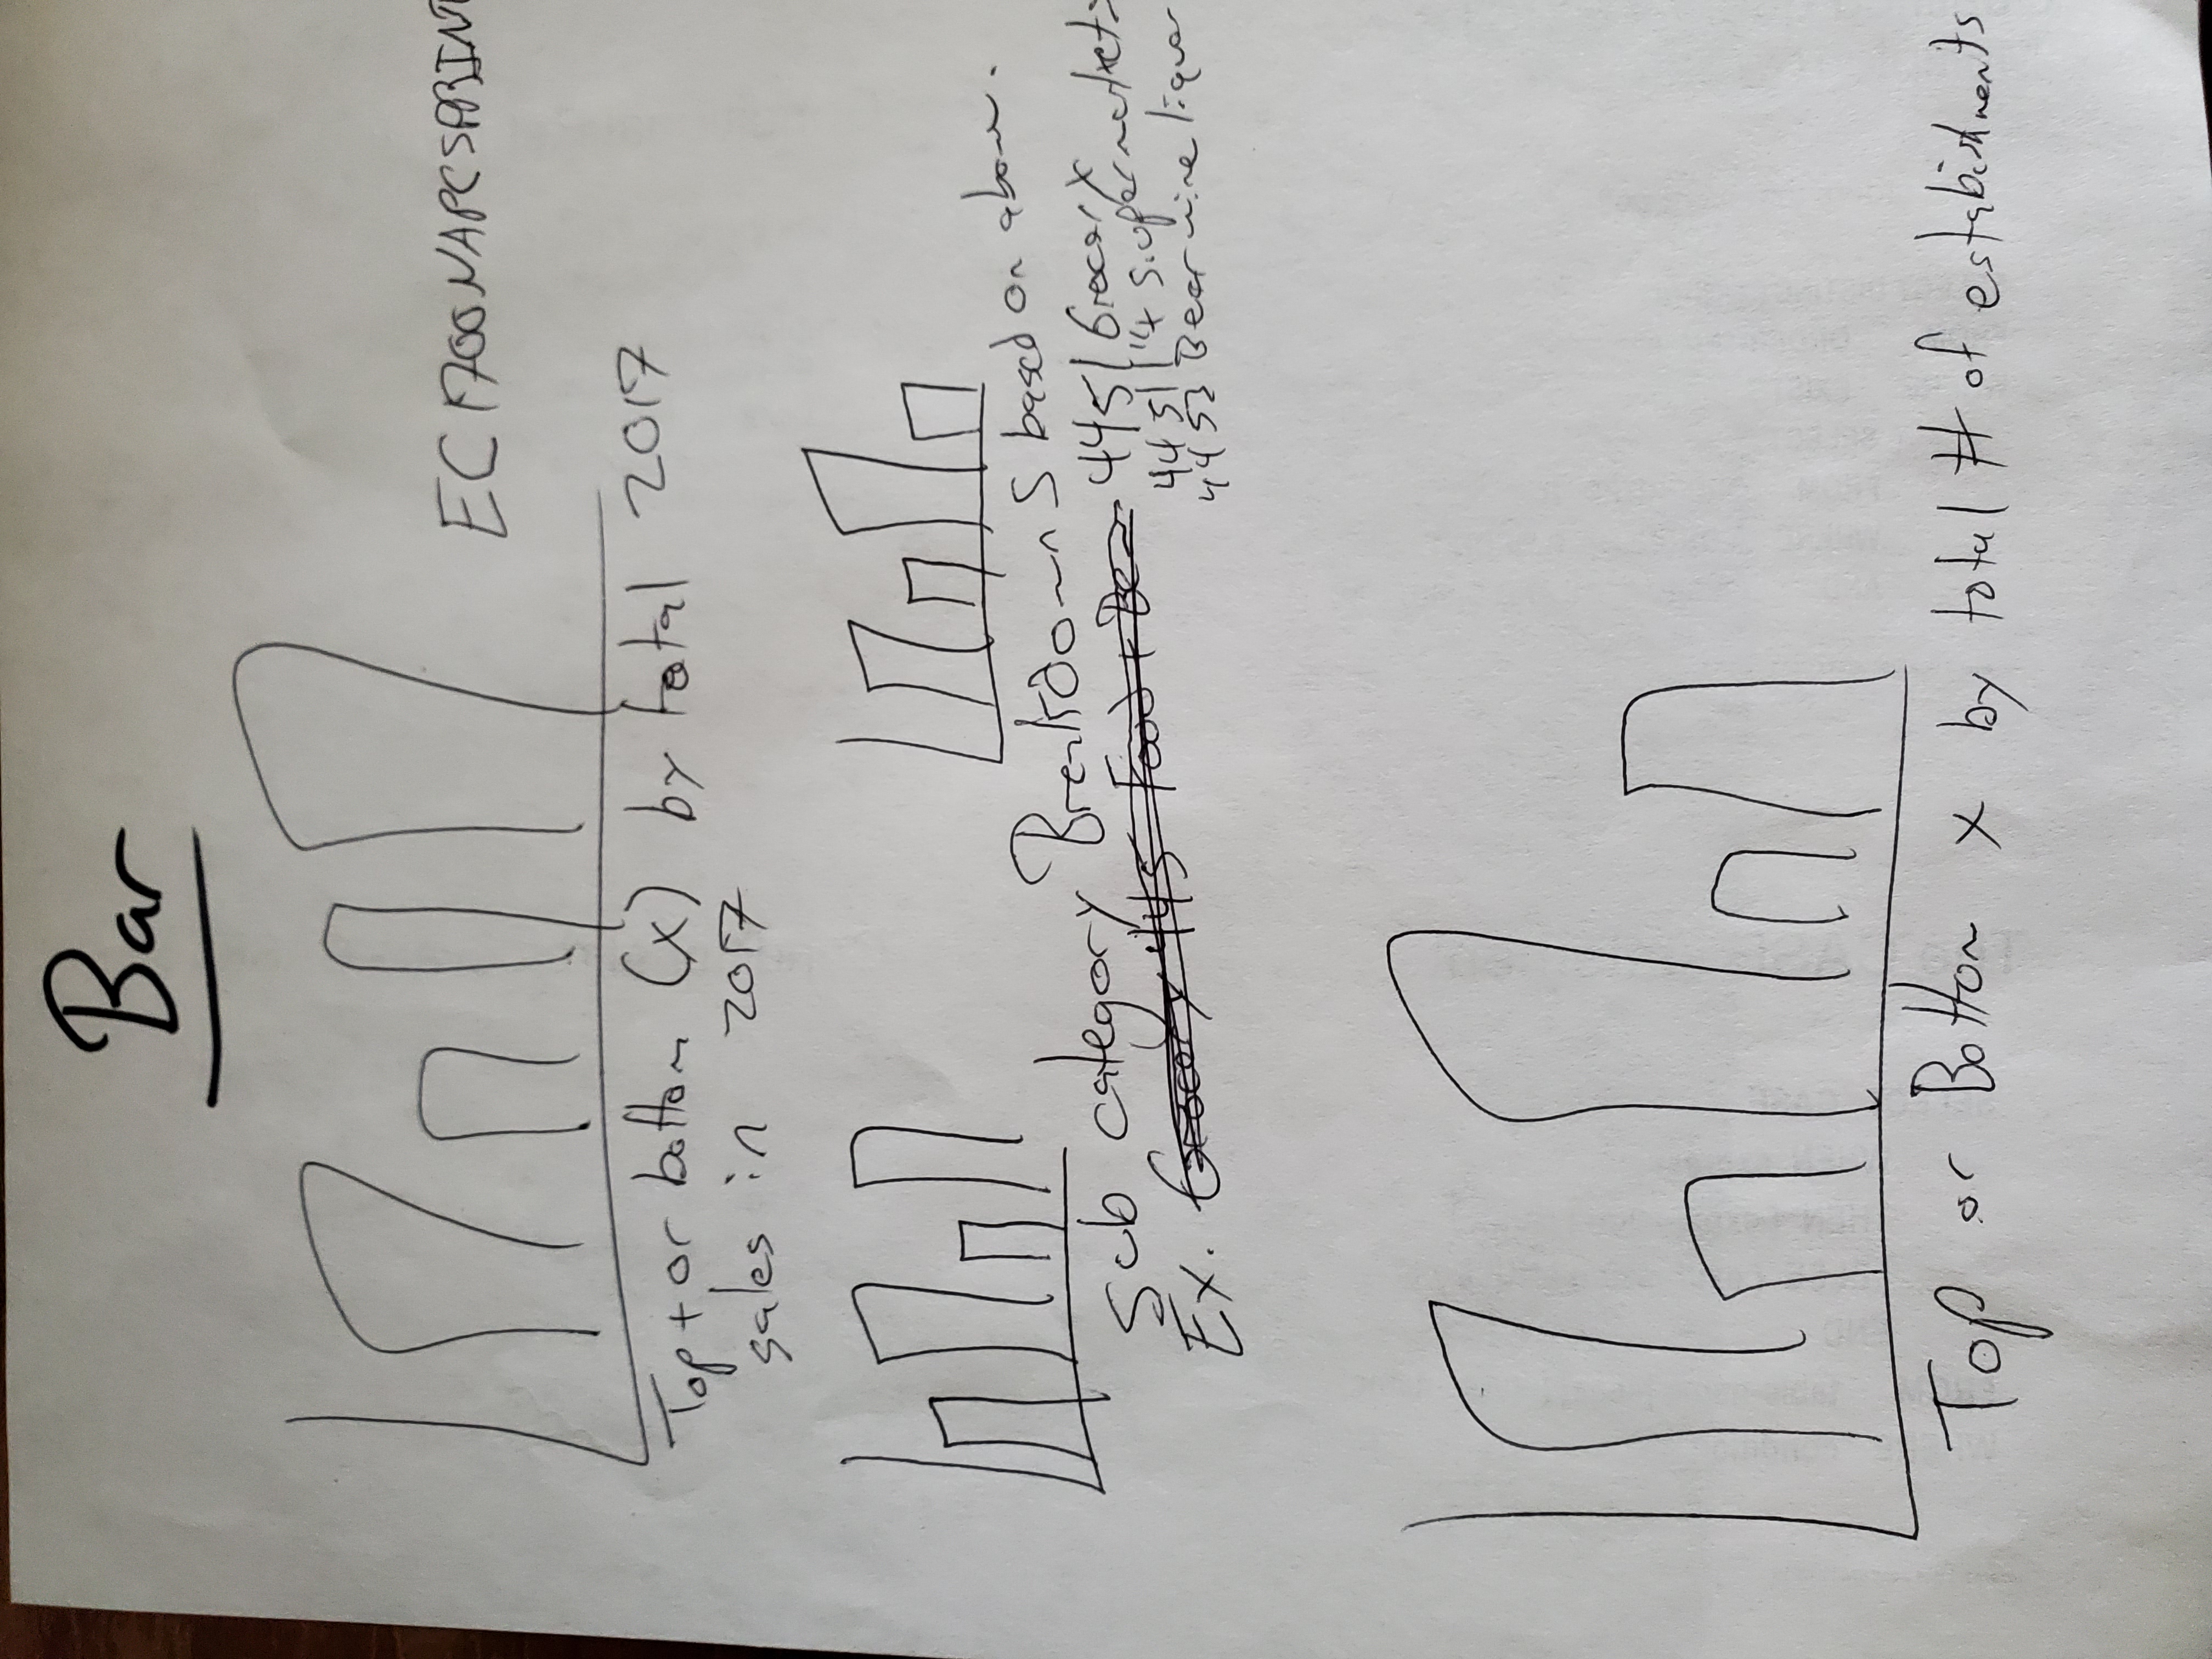 Bar
EC1700NAPCSPRINT
Top + or bottom (x) by total 2017
sales in 2017
Sub category Breakdowns based on above.
Ex. Grocery 445 Food + Bev 4451 Grocery
445114 Supermarkets
4453 Beer wine liquor
Top or Bottom x by total # of estabishments